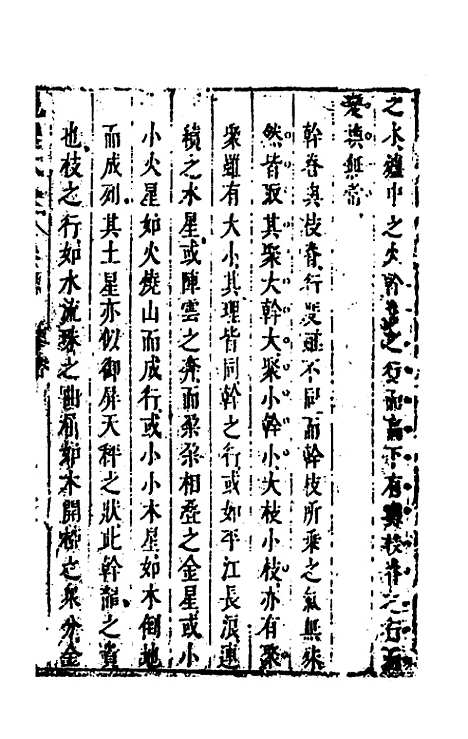 之水邊中之火幹之行而高下有實枝脊之行而
愛與無常
幹脊與枝脊行愛雖不同而幹枝所乘之氣無殊
然皆取其聚大幹大聚小幹小大枝小枝亦有聚
衆雖有大小其理皆同幹之行或如平江長浪連
積之水星或陣雲之奔而朶朶相疊之金星或小
小火星如火燒山而成行或小小木星如木倒地
而成列其土星亦似御屏天秤之狀此幹龍之賁
也枝之行如水流珠之曲之衆分金